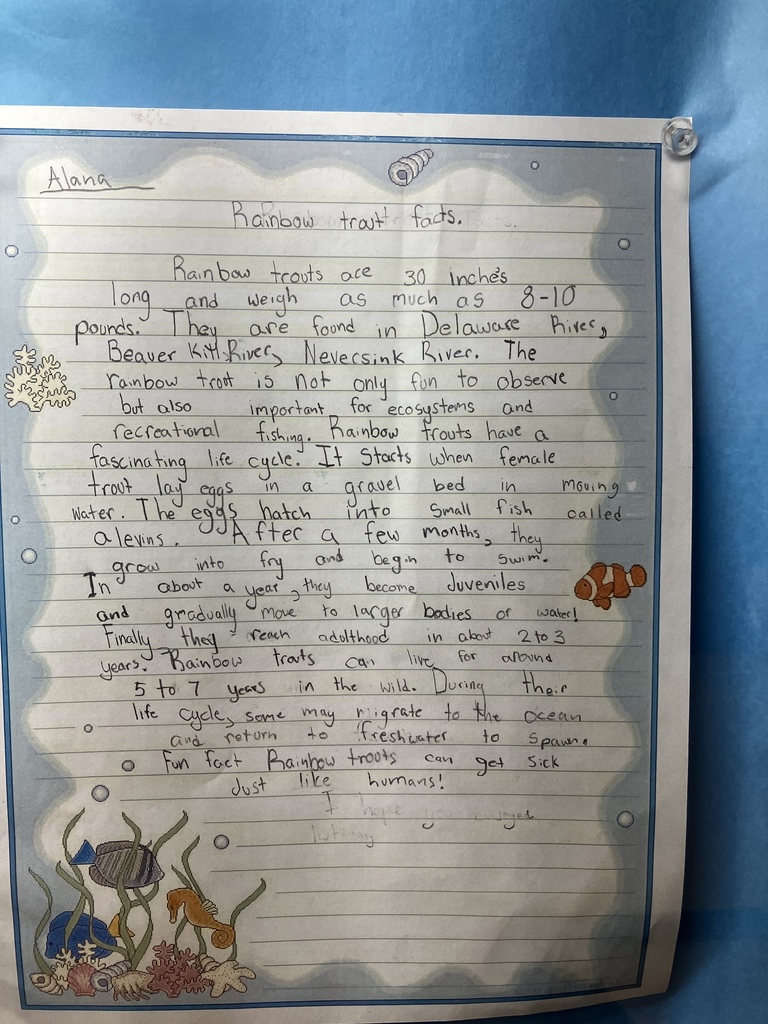 Alana
Rainbow trout facts.
Rainbow trouts are 30 inche's
long and weigh as much as 8-10
pounds. They are found in Delaware River,
Beaver Kill River, Neversink River. The
rainbow trout is not only fun to observe
but also important for ecosystems and
recreational fishing. Rainbow trouts have a
fascinating life cycle. It starts when female
trout lay eggs in a gravel bed in moving
water. The eggs hatch into small fish called
alevins. After a few months, they
grow into fry and begin to swim.
In about a year, they become Juveniles
and gradually move to larger bodies of water!
Finally they reach adulthood in about 2 to 3
years. Rainbow trouts can live for around
5 to 7 years in the wild. During their
life cycle, some may migrate to the ocean
and return to freshwater to spawn.
Fun fact Rainbow trouts can get sick
Just like humans!
I hope enjoyed